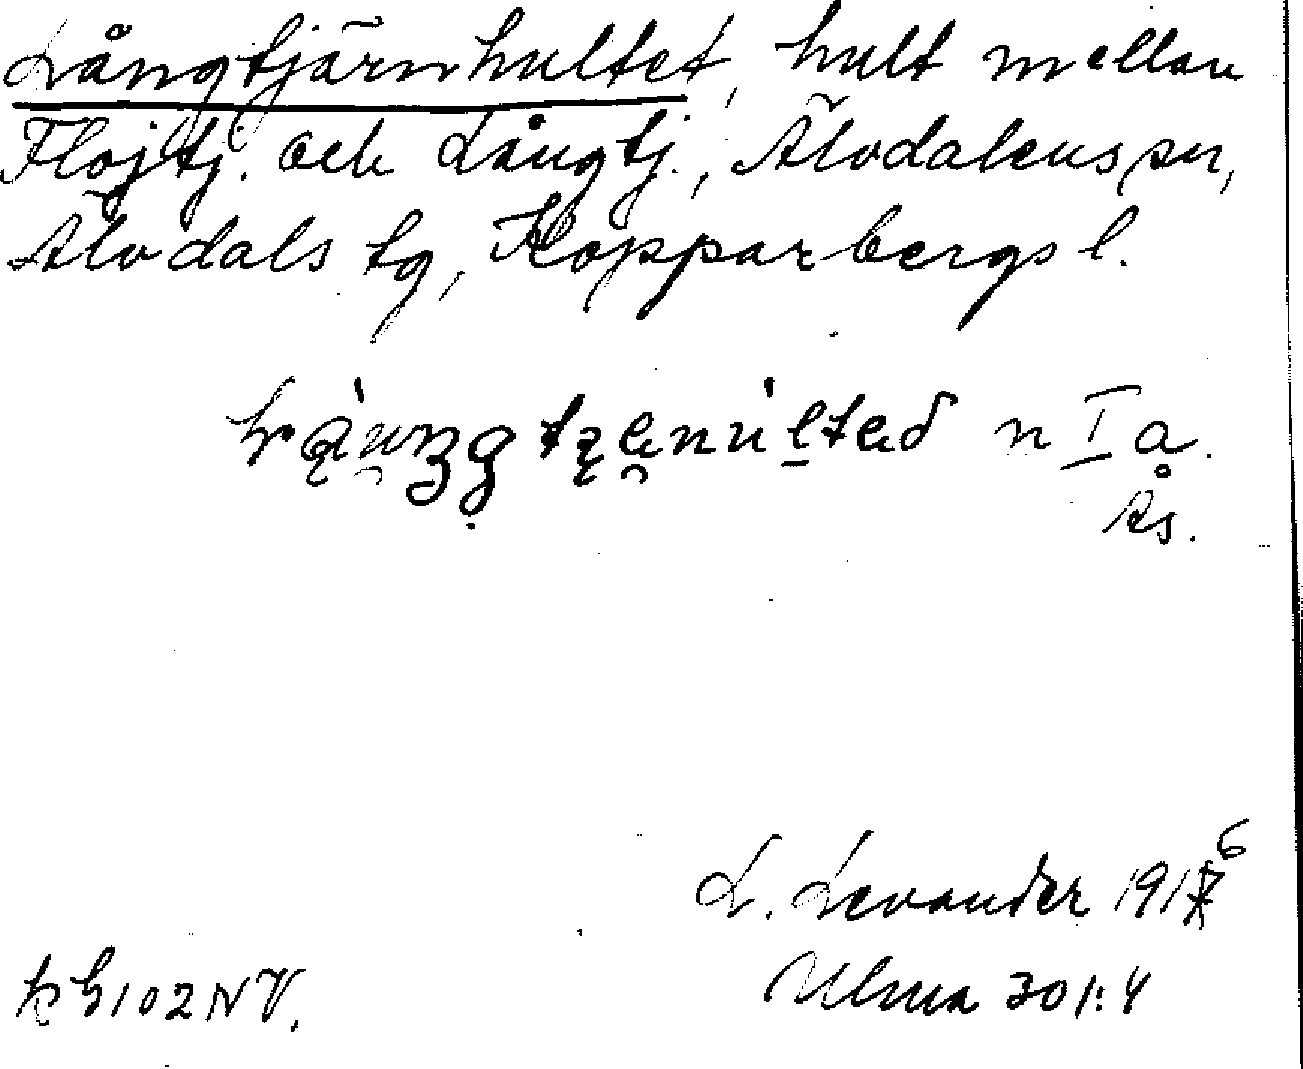 Långtjärnhultet, hult mellan
Flöjtj. och Långtj., Älvdalens sn,
Älvdals tg, Kopparbergs l.
n I a.
Ås.
L. Levander 1916
kbl 102 NV.
Ulma 301:4